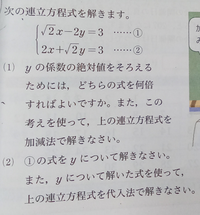 次の連立方程式を解きます。
√2x−2y=3 ……①
2x+√2y=3 ……②
(1) yの係数の絶対値をそろえる
ためには、どちらの式を何倍
すればよいですか。また、この
考えを使って、上の連立方程式を
加減法で解きなさい。
(2) ①の式をyについて解きなさい。
また、yについて解いた式を使って、
上の連立方程式を代入法で解きなさい。